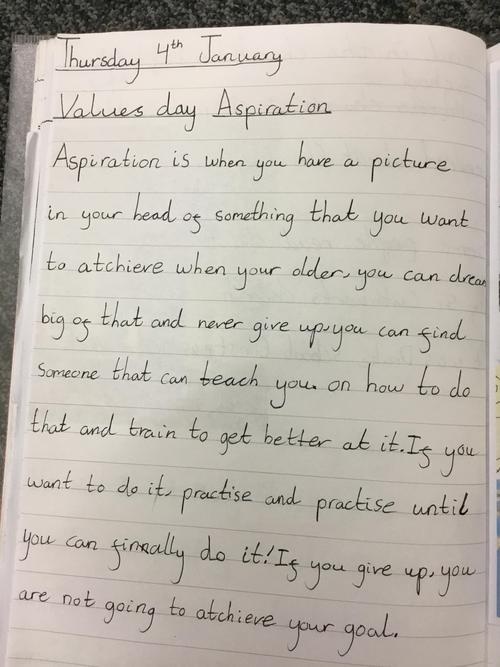 Thursday 4th January
Values day Aspiration
Aspiration is when you have a picture
in your head of something that you want
to atchieve when your older, you can dream
big of that and never give up, you can find
someone that can teach you. on how to do
that and train to get better at it. If you
want to do it, practise and practise until
you can finnally do it! If you give up, you
are not going to atchieve your goal.